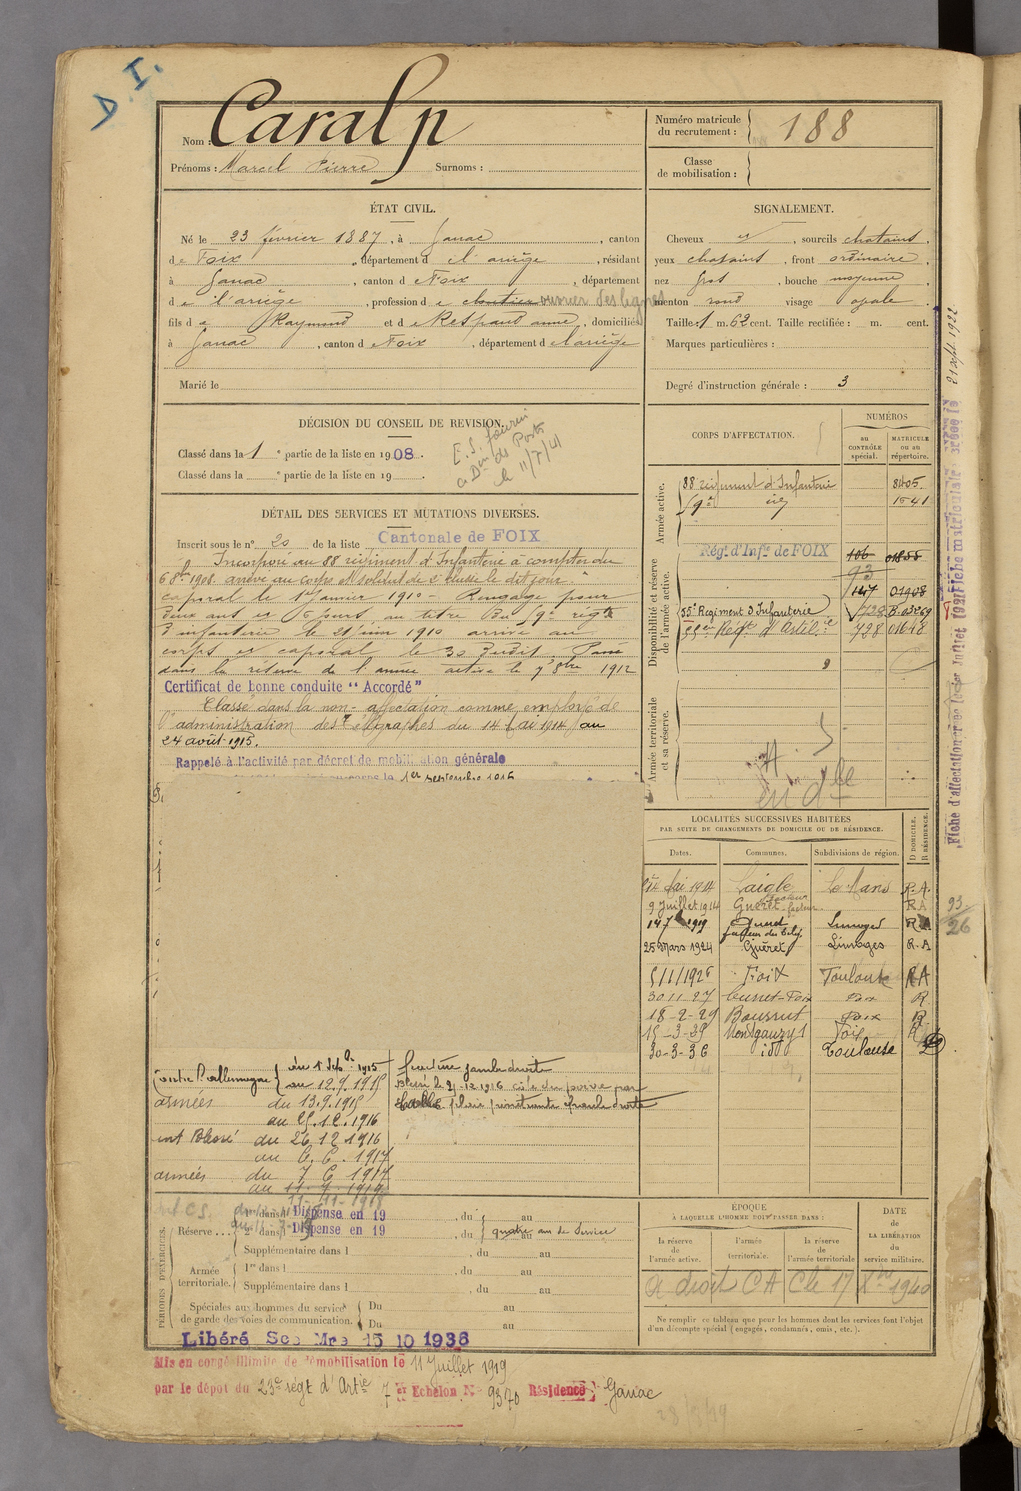 D. I.
Nom : Caralp
Prénoms : Marcel Pierre Surnoms :
Numéro matricule du recrutement : 188
Classe de mobilisation :
ÉTAT CIVIL.
Né le 23 février 1887, à Ganac, canton
de Foix, département d e l'ariège, résidant
à Ganac, canton d e Foix, département
d e l'ariège, profession d e cloutier ouvrier des lignes
fils d e Raymond et d e Respaud anne, domiciliés
à Ganac, canton d e Foix, département d e l'ariège
Marié le
SIGNALEMENT.
Cheveux et, sourcils chatains,
yeux chatains, front ordinaire,
nez gros, bouche moyenne,
menton rond visage ovale
Taille : 1 m. 62 cent. Taille rectifiée : m. cent.
Marques particulières :
Degré d'instruction générale : 3
DÉCISION DU CONSEIL DE REVISION.
Classé dans la 1e partie de la liste en 1908.
Classé dans la e partie de la liste en 19
E.S. fourni
le 11/7/41
DÉTAIL DES SERVICES ET MUTATIONS DIVERSES.
Inscrit sous le n° 20 de la liste Cantonale de FOIX
Incorporé au 88 régiment d'Infanterie à compter du
6 8bre 1908. arrivé au corps et soldat de 2e classe le dit jour.
caporal le 1er janvier 1910 - Rengagé pour
deux ans et 6 jours au titre du 59e régt
d'infanterie le 21 juin 1910 arrivé au
corps et caporal le 30 dudit. Passé
dans la réserve de l'armée active le 7 8bre 1912
Certificat de bonne conduite "Accordé"
Classé dans la non-affectation comme employé de
l'administration des télégraphes du 14 Mai 1914 au
24 août 1915.
Rappelé à l'activité par décret de mobilisation générale
1er septembre 1915
CORPS D'AFFECTATION.
NUMÉROS
au CONTRÔLE spécial.
MATRICULE ou au répertoire.
Armée active.
88 régiment d'Infanterie 8405
59e id 1541
Disponibilité et réserve de l'armée active.
Régt d'Infie de FOIX 106 01855
93
147 01908
55e Régiment d'Infanterie 728 B.03269
55e Régt d'Artillie 728 01648
Armée territoriale et sa réserve.
LOCALITÉS SUCCESSIVES HABITÉES
PAR SUITE DE CHANGEMENTS DE DOMICILE OU DE RÉSIDENCE.
Dates. Communes. Subdivisions de région. D DOMICILE. R RÉSIDENCE.
14 Mai 1914 Laigle Le Mans R.A.
9 Juillet 1914 Guéret facteur RA
1919 Limoges R A
25 Mars 1924 Guéret Limoges R.A
5/1/1926 Foix Toulouse RA
30 11 27 Foix R
18-2-29 Foix R
15-3-35 Montgauzy 1 Foix R
30-3-36 id Toulouse
93/26
Fiche d'affectation
21 sept 1922
Contre l'allemagne du 1 Sep. 1915
au 12.9.1915
armées du 13.9.1915
au 25.12.1916
int Blessé du 26 12 1916
au 6.6.1917
armées du 7 6 1917
au 11-7-1919
11-11-1918
fracture jambe droite
Blessé le 25-12-1916 côte du poivre par
balle plaie pénétrante hanche droite
PÉRIODES D'EXERCICES.
Réserve... 1re dans l Dispense en 19, du au
2e dans l Dispense en 19, du quatre ans de Service au
Supplémentaire dans l, du au
Armée territoriale. 1re dans l, du au
Supplémentaire dans l, du au
Spéciales aux hommes du service de garde des voies de communication. Du au
Du au
Libéré Sce Mre 15 10 1936
ÉPOQUE
À LAQUELLE L'HOMME DOIT PASSER DANS :
la réserve de l'armée active.
l'armée territoriale.
la réserve de l'armée territoriale
DATE de LA LIBÉRATION du service militaire.
a droit CA Cl. 17 1940
Ne remplir ce tableau que pour les hommes dont les services font l'objet
d'un décompte spécial (engagés, condamnés, omis, etc.).
Mis en congé illimité de démobilisation le 11 Juillet 1919
par le dépôt du 23e régt d'Artie 7e Echelon N° 9370 Résidence Ganac